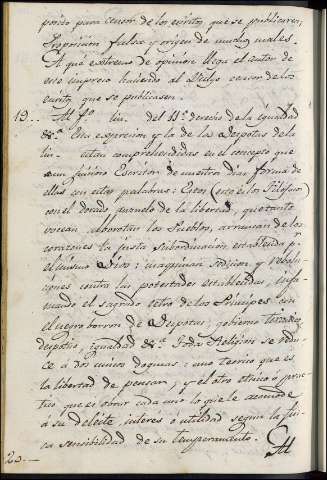 para censor de los escritos que se publicaren,
Proposicion falsa y origen de muchos males.
A qué extremo de opinion llega el autor de
este impreso haciendo al Pueblo censor de los
escritos que se publicasen.
19... Al fo. lin. del 11.º derecho de la igualdad
&.ª Esta expresion y la de los Despotas de la
lin. estan comprehendidas en el concepto que
un juicioso Escritor de nuestros dias forma de
ellas con estas palabras: Estos (esto es los Filosofos)
con el dorado anzuelo de la libertad, que tanto
vocean, alborotan los Pueblos, arrancan de los
corazones la justa subordinacion establecida p.r
el mismo Dios: maquinan sedicion y rebeli-
ciones contra las potestades establecidas, infa-
mando el sagrado cetro de los Principes con
el negro borron de Despotas, gobierno
despotico, igualdad &.ª Toda Religion se redu-
ce á dos unicos dogmas: uno teorico que es
la libertad de pensar; y el otro etnico ó prac-
tico que es obrar cada uno lo que le acomode
á su deleite, interés ó utilidad segun la fisi-
ca sensibilidad de su temperamento.
20.... Al